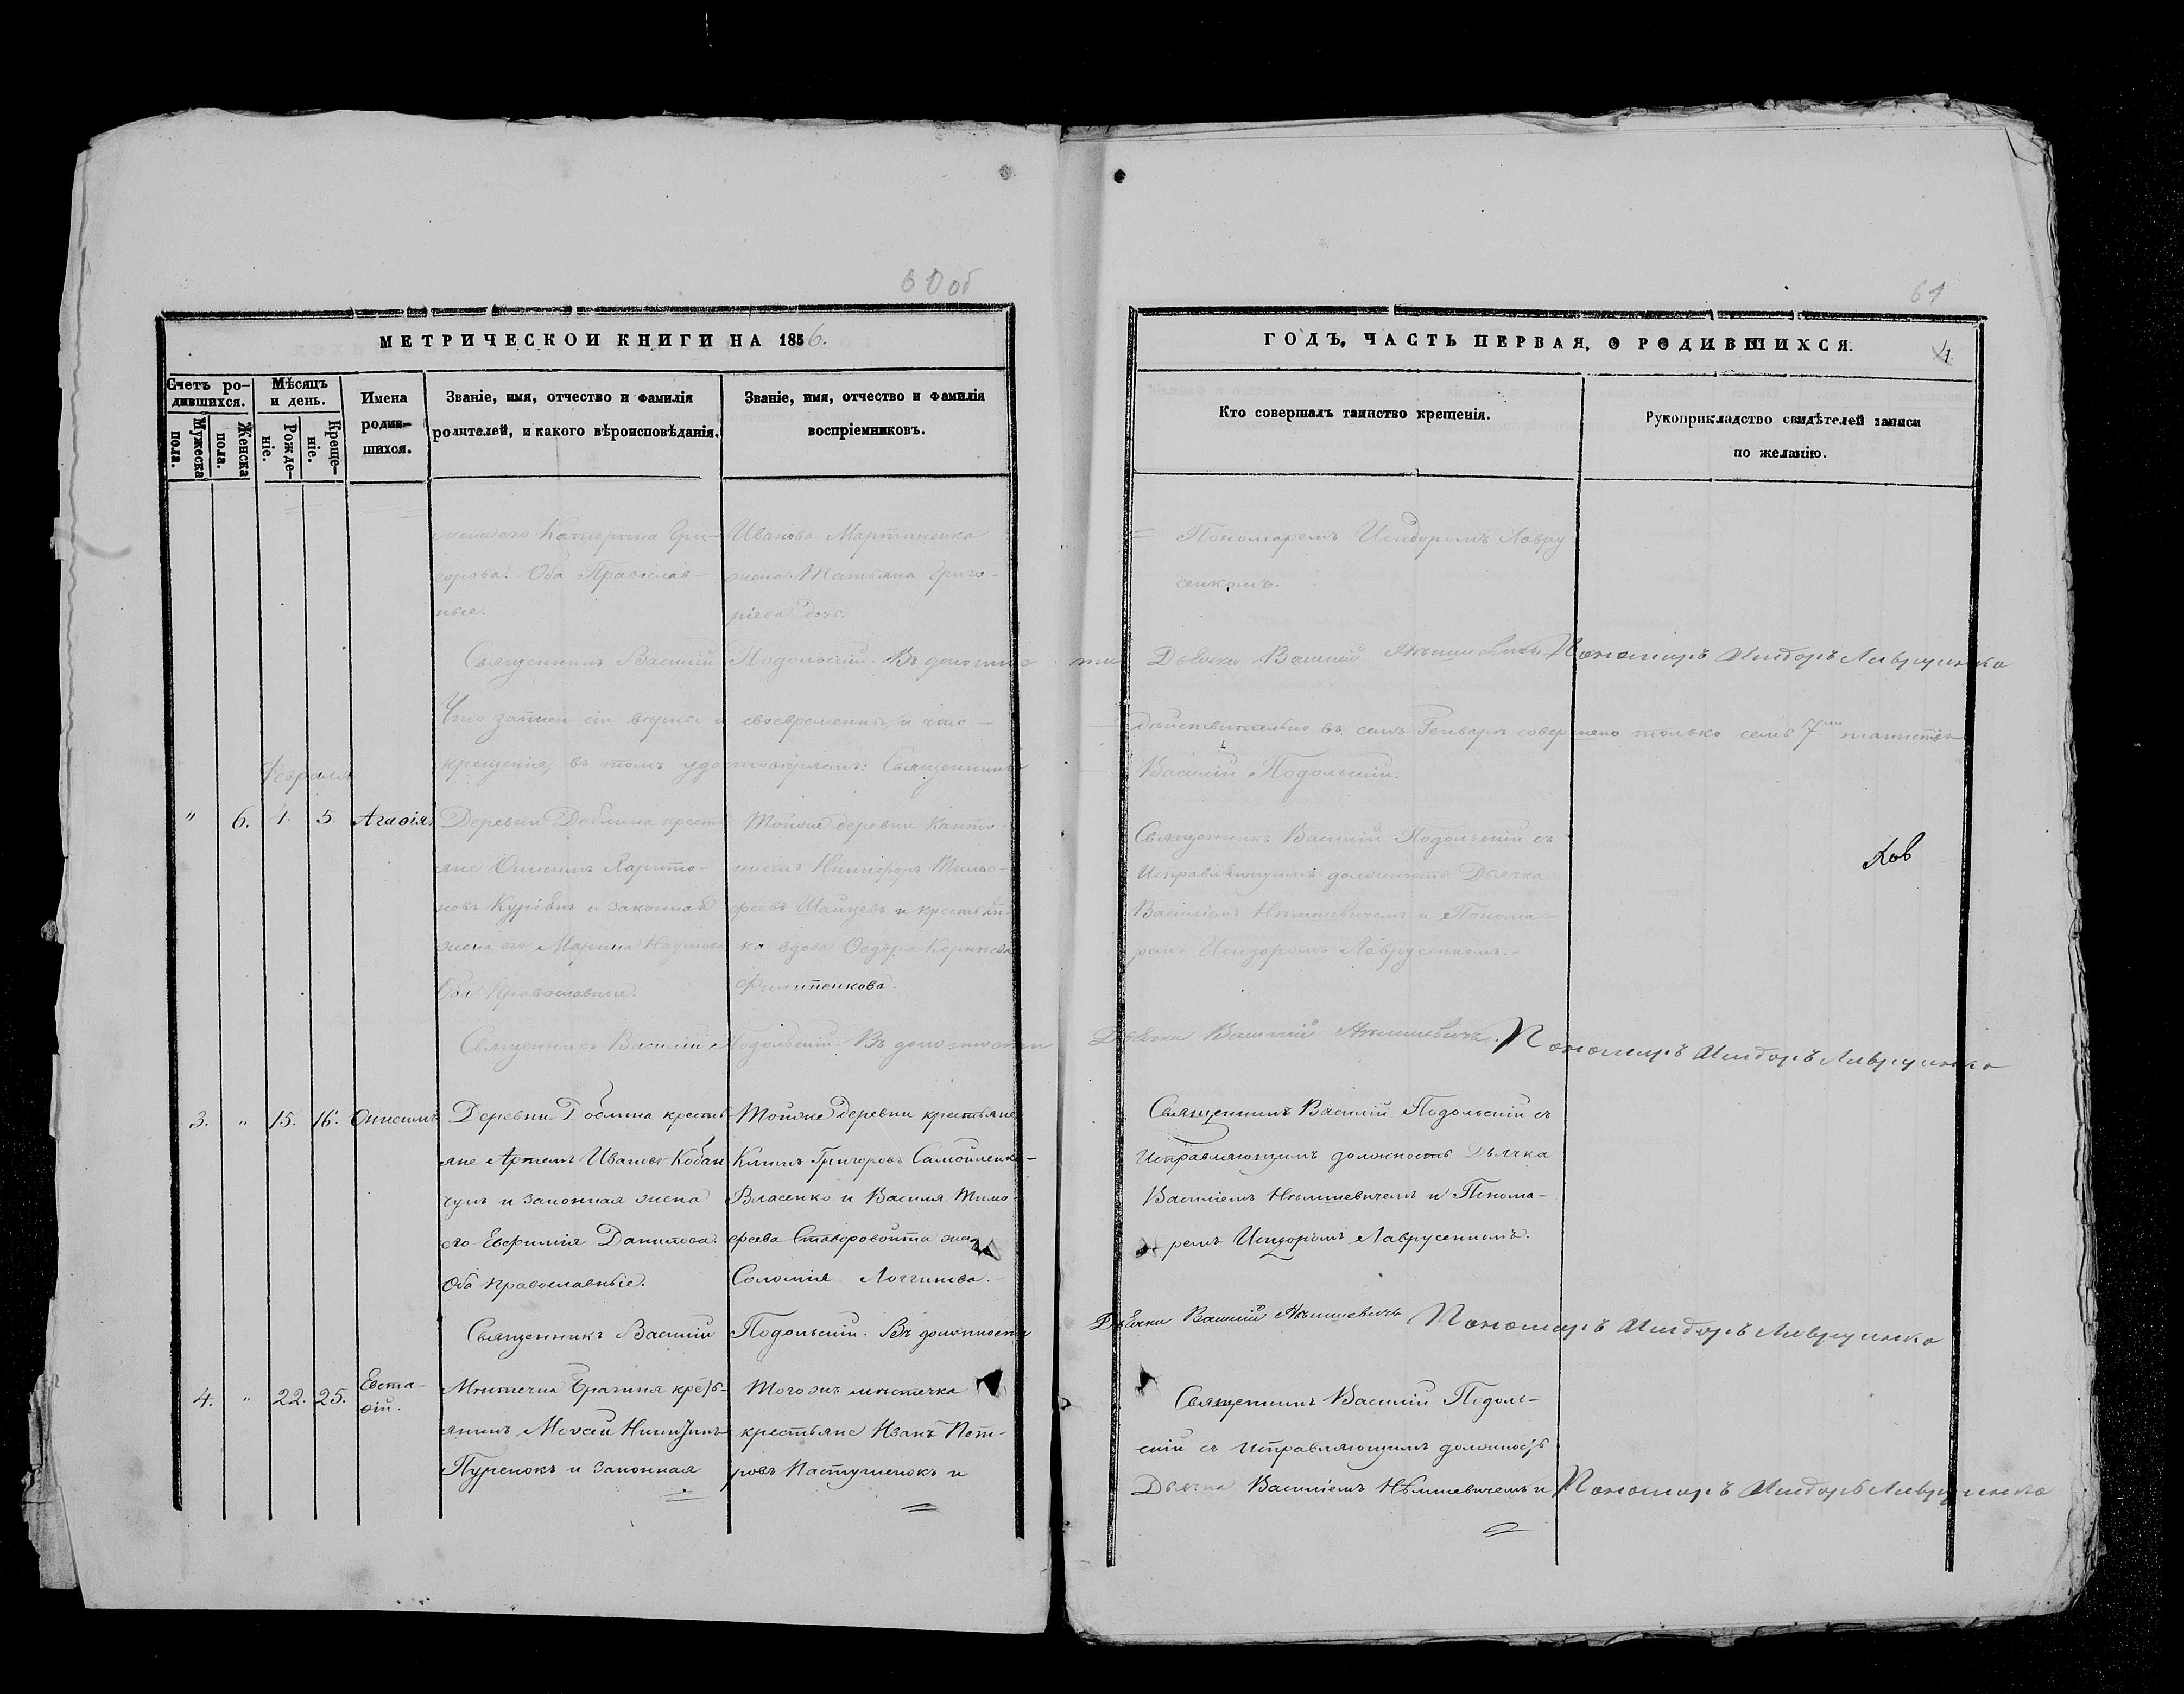 60 об
МЕТРИЧЕСКОЙ КНИГИ НА 1856.
Счетъ ро-
дившихся.
Мужеска
пола.
Женска
пола.
Мѣсяцъ
и день.
Рожде-
ніе.
Креще-
ніе.
Имена
родив-
шихся.
Званіе, имя, отчество и фамилія
родителей, и какого вѣроисповѣданія.
Званіе, имя, отчество и фамилія
воспріемниковъ.
жена его Катерина Григ-
орова. Оба Православ-
ные.
Иванова Мартиненка
жена Татьяна Григо-
ріева дочь.
Священникъ Василій Подольскій. Въ должнос
Что записи сіи вѣрны и своевременны, и что
крещенія, въ томъ удостовѣряемъ: Священникъ
Февраля
" 6. 4. 5. Агафія.
Деревни Доблина кресть-
яне Онисимъ Харито-
новъ и законная
жена его Марина Наумова
Оба Православные.
Тойже деревни Канто-
нистъ Никифоръ Тимо-
феевъ Шайцевъ и крестьян-
ка вдова Феодора Корнѣева
Филипенкова.
Священникъ Василій Подольскій. Въ должности
3. " 15. 16. Онисимъ
Деревни Доблина кресть-
яне Артемъ Ивановъ Кобан
чукъ и законная жена
его Евфимія Данилова.
Оба православные.
Тойже деревни крестьяне
Климъ Григоровъ Самойленко-
Власенко и Василя Тимо-
феева Ставровойта жена
Соломія Логгинова.
Священникъ Василій Подольскій. Въ должности
4. " 22. 25. Евста-
фій.
Мѣстечка Брагиня кресть-
янинъ Моисей
Пуренокъ и законная
Того жъ мѣстечка
крестьяне Иванъ Пет-
ровъ Пастушенокъ и
61
ГОДЪ, ЧАСТЬ ПЕРВАЯ, О РОДИВШИХСЯ.
4
Кто совершалъ таинство крещенія.
Рукоприкладство свидѣтелей записи
по желанію.
Пономаремъ Исидоромъ Лавру
сенкомъ.
ти Дьячка Василій Нѣмшевичъ Пономаръ Исидоръ Лаврусенко
дѣйствительно въ семъ Генварѣ совершено только семь 7 таинствъ
Василій Подольскій.
Священникъ Василій Подольскій съ
Исправляющимъ должность Дьячка
Василіемъ Нѣмшевичемъ и Понома-
ремъ Исидоромъ Лаврусенкомъ.
Дьячка Василій Нѣмшевичъ. Пономаръ Исидоръ Лаврусенко
Священникъ Василій Подольскій съ
Исправляющимъ должность Дьячка
Василіемъ Нѣмшевичемъ и Понома-
ремъ Исидоромъ Лаврусенкомъ.
Дьячка Василій Нѣмшевичъ Пономаръ Исидоръ Лаврусенко
Священникъ Василій Подоль-
скій съ Исправляющимъ должность
Дьячка Василіемъ Нѣмшевичемъ и Пономаръ Исидоръ Лаврусенко